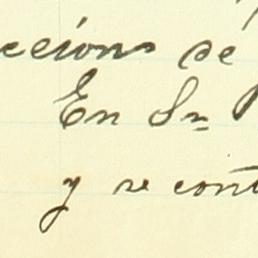 cciones de
En Sn
y se cont